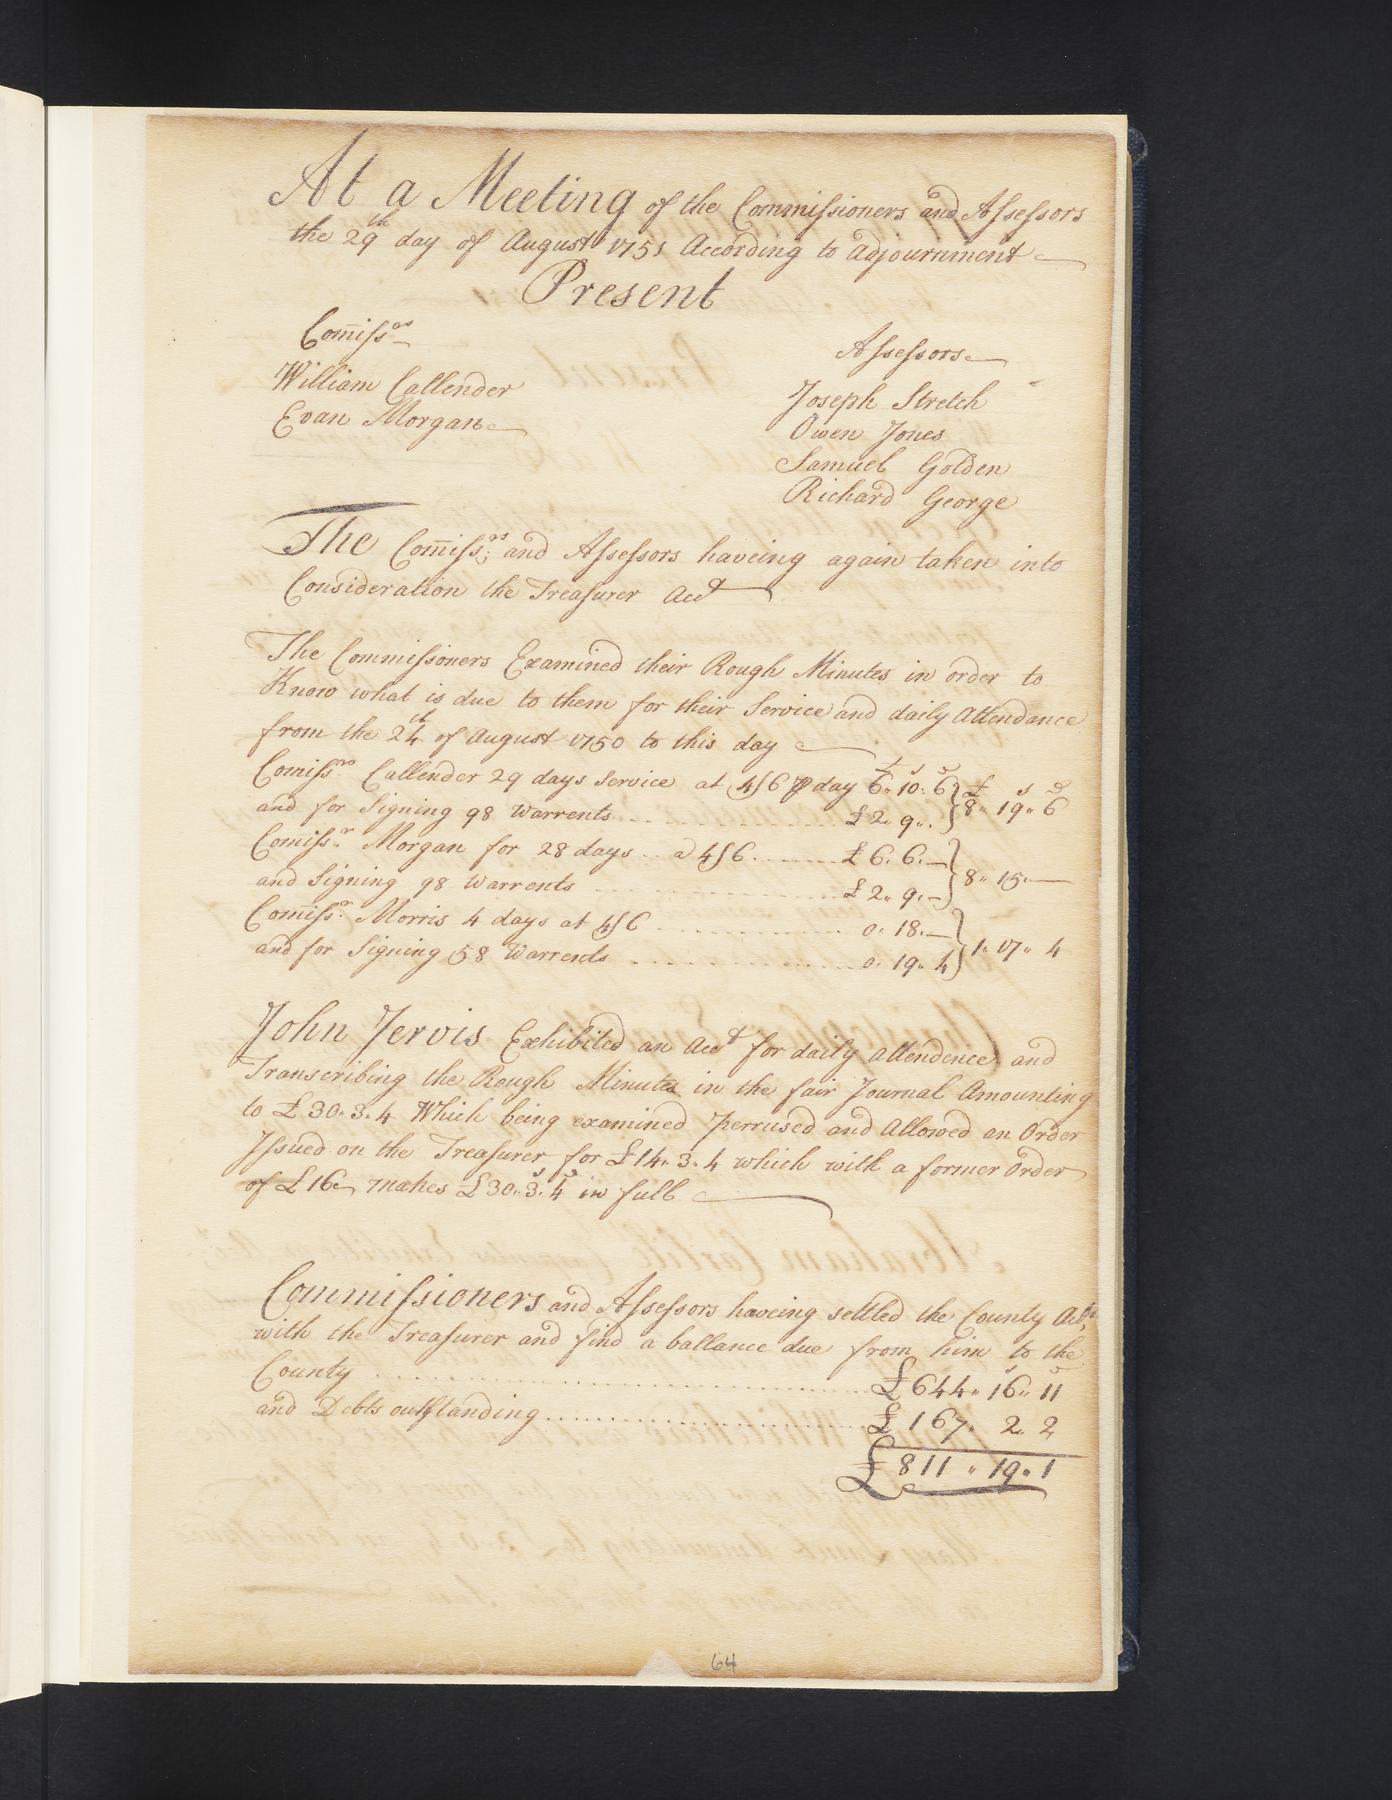 At a Meeting of the Commissioners and Assessors
the 29th day of August 1751 According to adjournment
Present
Comissrs
William Callender
Evan Morgan
Assessors
Joseph Stretch
Owen Jones
Samuel Golden
Richard George
The Comissrs and Assessors haveing again taken into
Consideration the Treasurer Acct
The Commissioners Examined their Rough Minutes in order to
Know what is due to them for their Service and daily Attendance
from the 24th of August 1750 to this day
£ s d
Comissr Callender 29 days Service at 4/6 ⅌ day 6.. 10.. 6 } £ s d 8.. 19.. 6
and for Signing 98 Warrents £2.. 9..
Comissr Morgan for 28 days a 4/6 £6.. 6.. — } 8.. 15.. —
and Signing 98 Warrents £2.. 9.. —
Comissr Morris 4 days at 4/6 0.. 18.. — } 1.. 17.. 4
and for Signing 58 Warrents 0.. 19.. 4
John Jervis Exhibited an Acct for daily attendence and
Transcribing the Rough Minutes in the fair Journal Amounting
to £30..3..4 Which being examined perrused and Allowed an Order
Issued on the Treasurer for £14..3..4 which with a former Order
of £16 makes £30..3s..4d in full
Commissioners and Assessors haveing settled the County Accts
with the Treasurer and find a ballance due from him to the
County £644.. 16s.. 11d
and Debts outstanding £167.. 2.. 2
£811.. 19.. 1
64